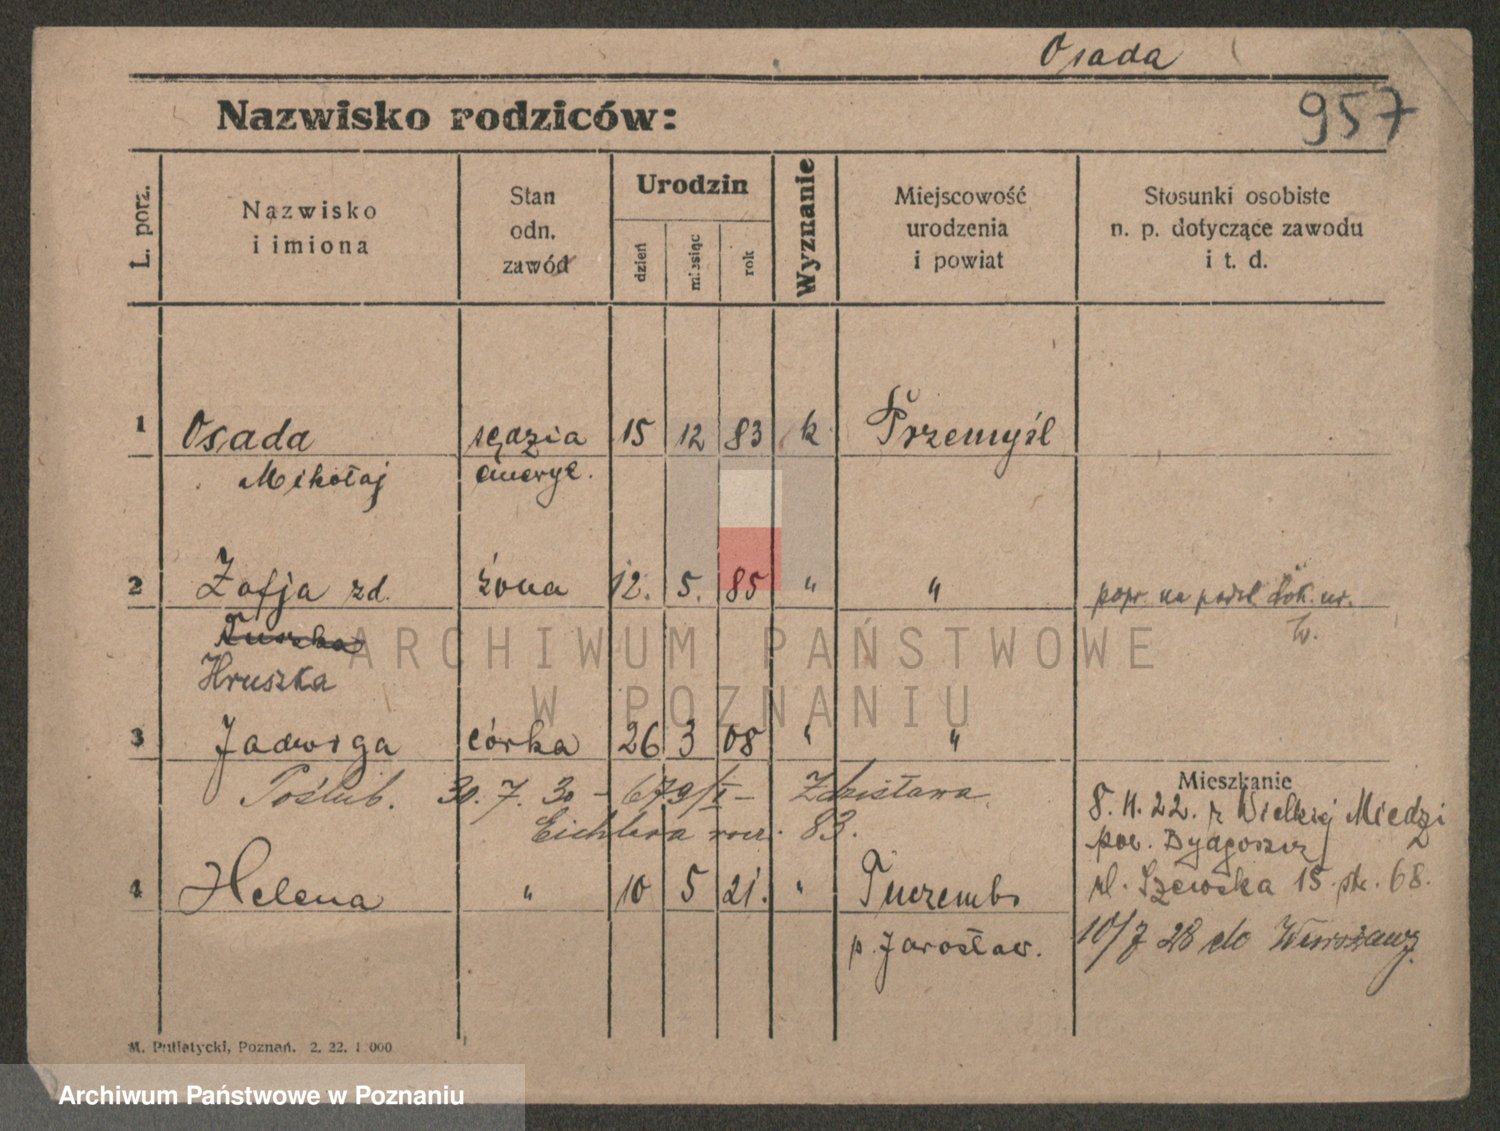 Osada
957
Nazwisko rodziców:
L. porz.
Nazwisko
i imiona
Stan
odn.
zawód
Urodzin
dzień
miesiąc
rok
Wyznanie
Miejscowość
urodzenia
i powiat
Stosunki osobiste
n. p. dotyczące zawodu
i t. d.
1 Osada sędzia 15 12 83 k Przemyśl
Mikołaj emeryt.
2 Zofja zd. żona 12. 5. 85 " "
popr. na podst. dok. ur.
Hruszka
3 Jadwiga córka 26 3 08 " "
Poślub. 30. 7. 30 – 679/I – Zdzisława
Eichlera 83.
4 Helena " 10 5 21. "
p. Jarosław.
Mieszkanie
8. 11. 22. z Wielkiej Miedzi
pow. Bydgoszcz
ul. Szewska 15 68.
10/7 28 do Warszawy
M. Putiatycki, Poznań. 2. 22. 1 000
ARCHIWUM PAŃSTWOWE
W POZNANIU
Archiwum Państwowe w Poznaniu